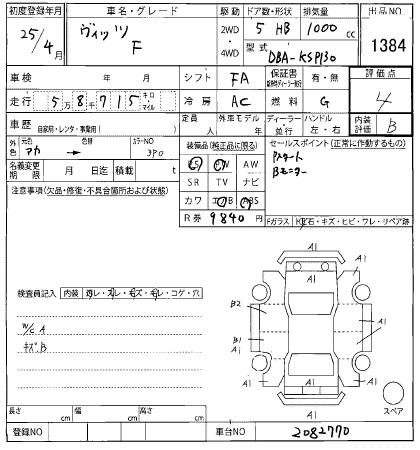 初度登録年月 車名・グレード 駆動 ドア数・形状 排気量 出品NO
25/4月 ヴィッツ F 2WD・4WD 5 HB 1000 cc 1384
型式 DBA-KSP130
車検 年 月 シフト FA 保証書 有・無 評価点
走行 5万8千715キロマイル 冷房 AC 燃料 G 4
車歴 自家用・レンタ・事業用( ) 定員 人 外車モデル 年 ディーラー 並行 ハンドル 左・右 内装評価 B
外色 元色 アカ 色替 カラーNO 3P0 装備品(純正品に限る) セールスポイント(正常に作動するもの)
PS PW AW Pスタート
名義変更期限 月 日迄 積載 t SR TV ナビ Bモニター
注意事項(欠品・修復・不具合箇所および状態) カワ エアB ABS
R券 9840円 Fガラス 飛石・キズ・ヒビ・ワレ・リペア跡
検査員記入 内装 汚レ・スレ・キズ・キレ・コゲ・穴
W/C A
キズ B
A1
A1
A1
B2
A1
B1
A1
A1
A1
A1
A1
スペア
長さ cm 幅 cm 高さ cm
登録NO 車台NO 2082770